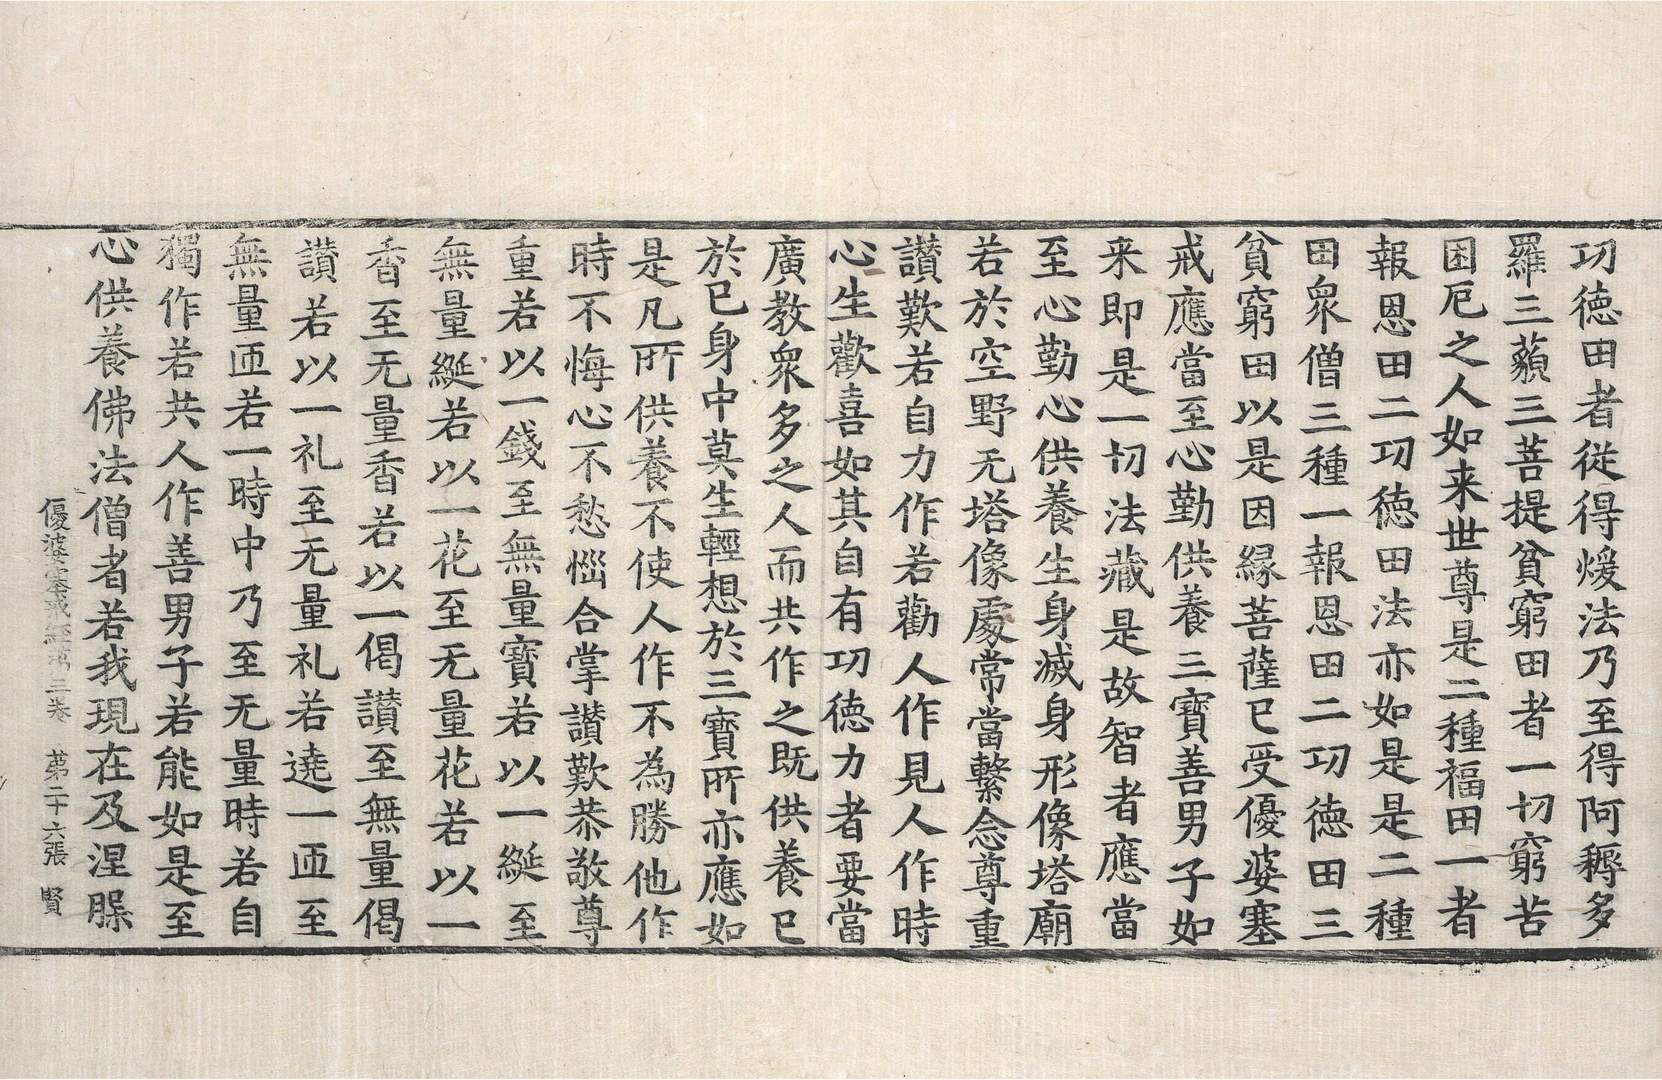 功德田者從得煖法乃至得阿耨多
羅三藐三菩提貧窮田者一切窮苦
困厄之人如来世尊是二種福田一者
報恩田二功德田法亦如是是二種
田衆僧三種一報恩田二功德田三
貧窮田以是因縁菩薩已受優婆塞
戒應當至心勤供養三寶善男子如
来即是一切法藏是故智者應當
至心勤心供養生身滅身形像塔廟
若於空野无塔像處常當繫念尊重
讃歎若自力作若勸人作見人作時
心生歡喜如其自有功德力者要當
廣教衆多之人而共作之既供養已
於已身中莫生輕想於三寶所亦應如
是凡所供養不使人作不為勝他作
時不悔心不愁惱合掌讃歎恭敬尊
重若以一錢至無量寶若以一綖至
無量綖若以一花至无量花若以一
香至无量香若以一偈讃至無量偈
讃若以一礼至无量礼若遶一匝至
無量匝若一時中乃至无量時若自
獨作若共人作善男子若能如是至
心供養佛法僧者若我現在及涅槃
優婆塞戒經第三卷　第二十六張　賢